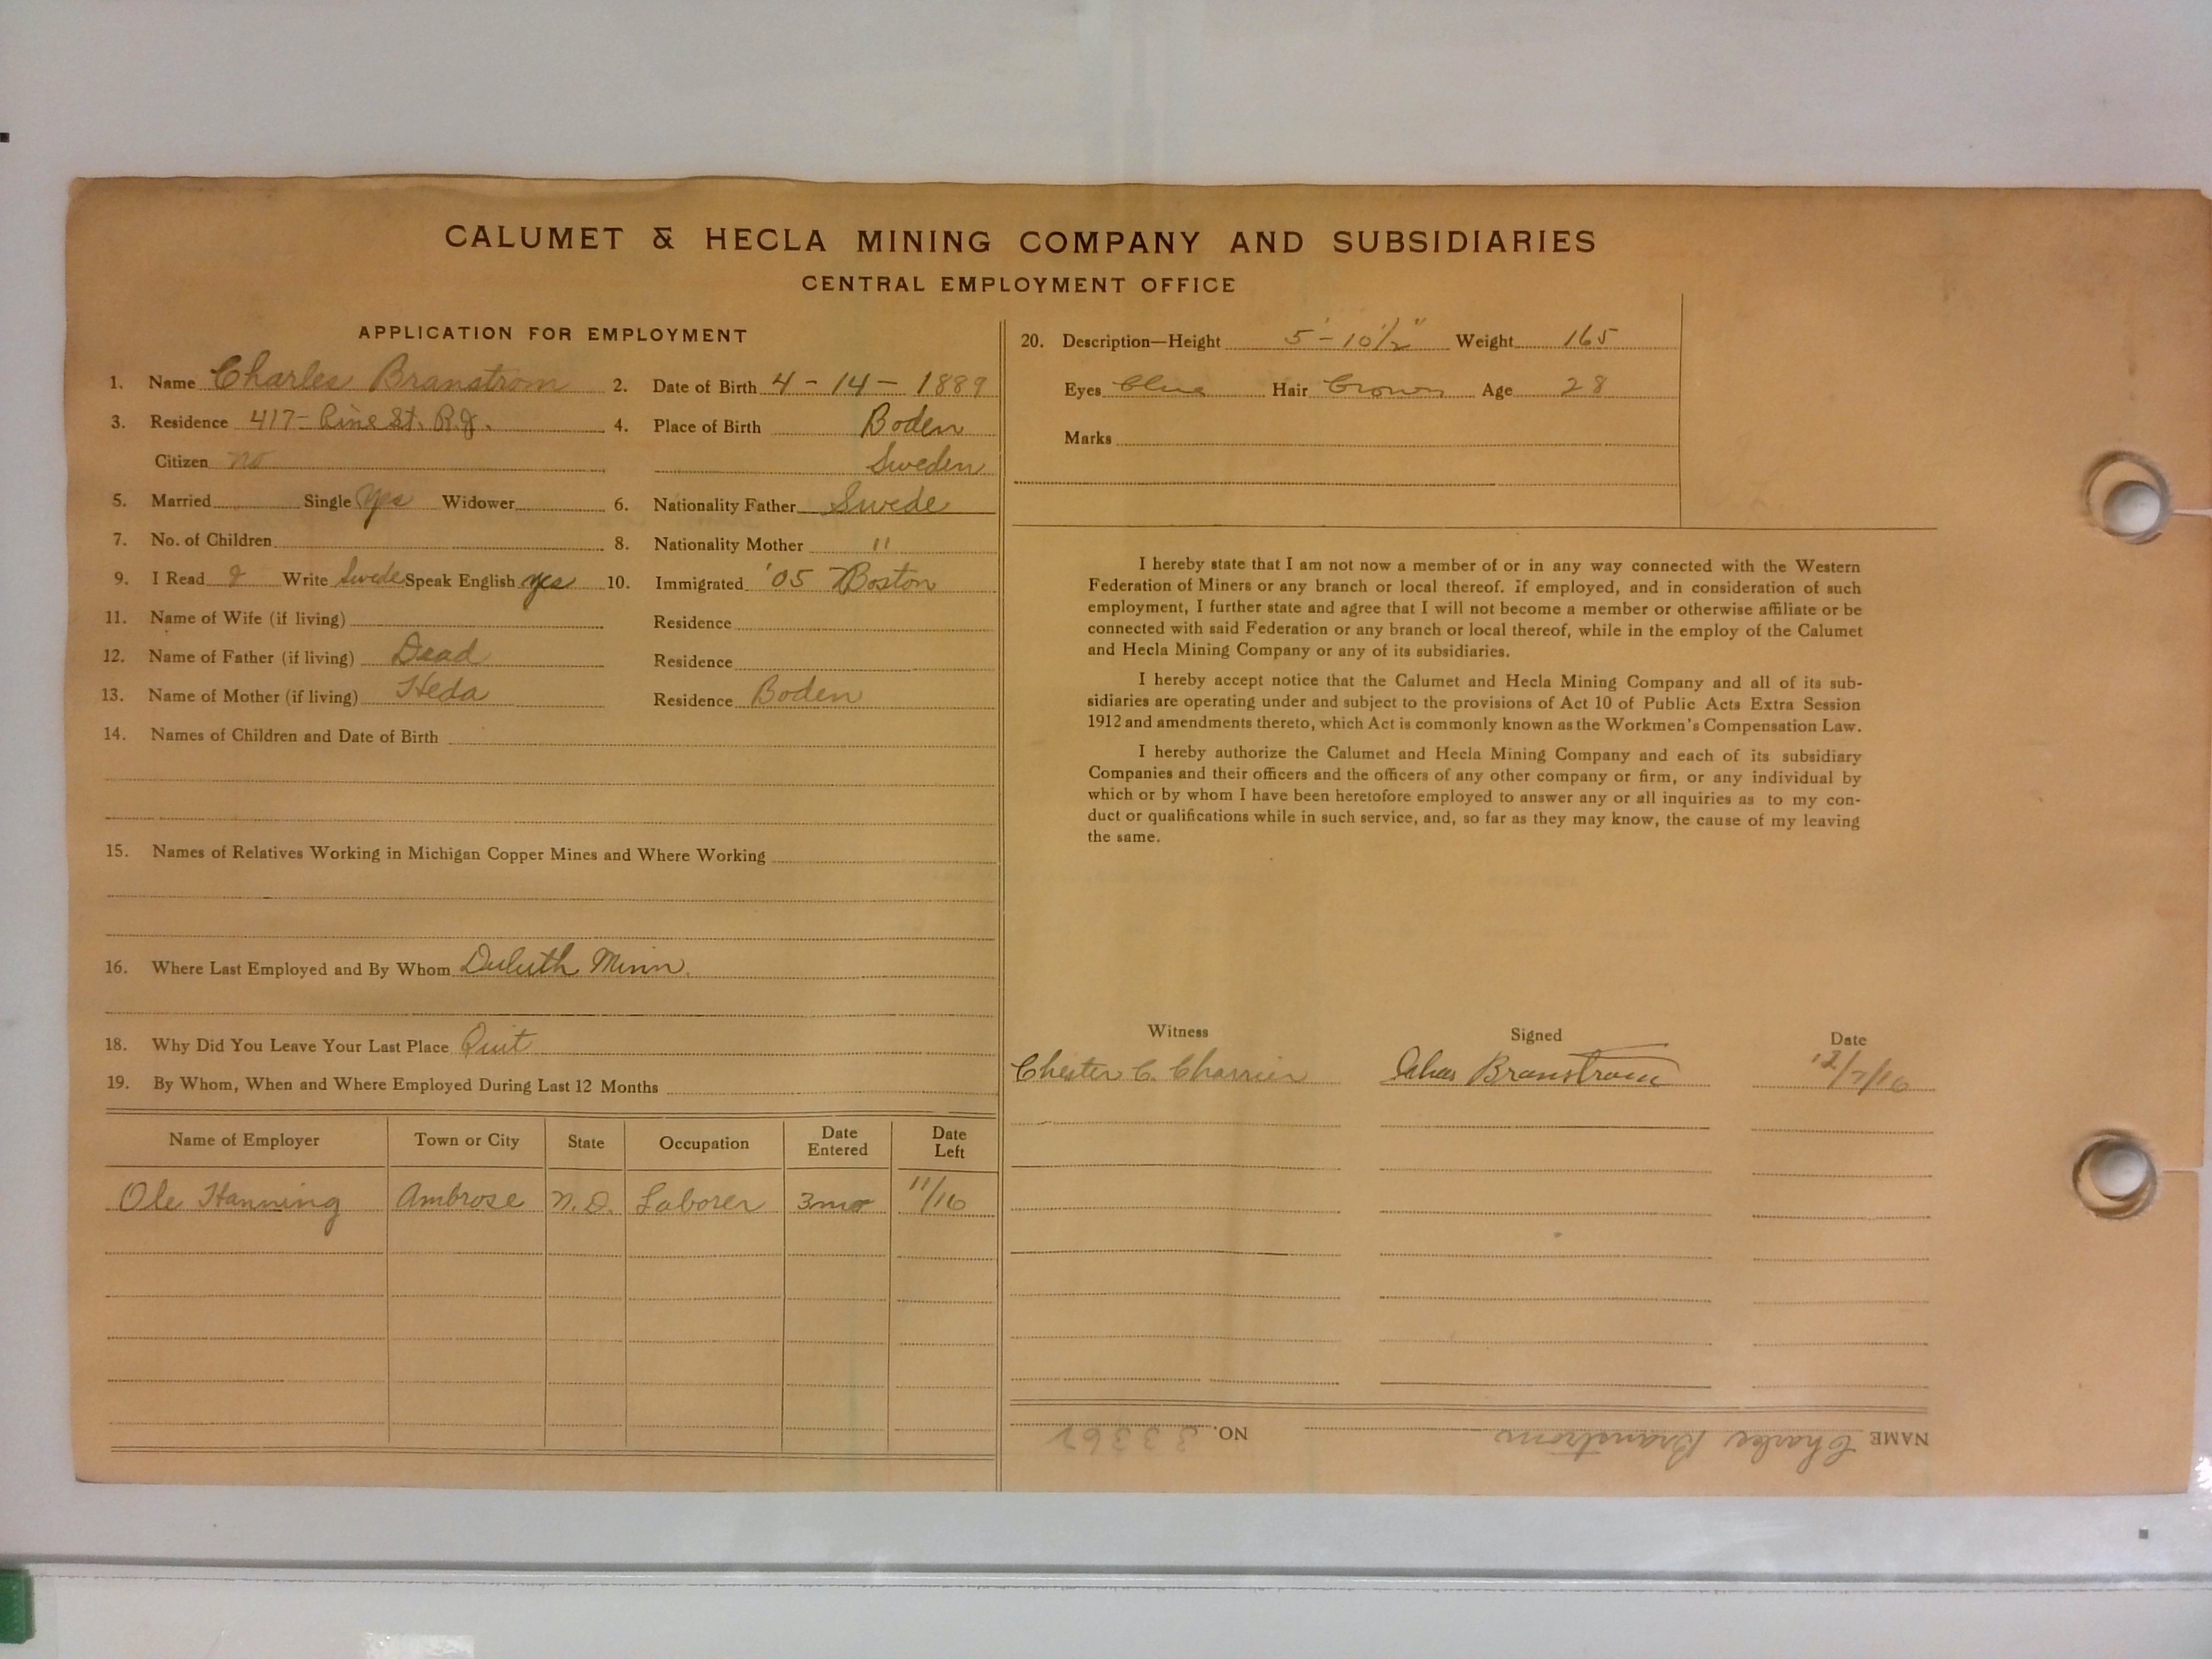 CALUMET & HECLA MINING COMPANY AND SUBSIDIARIES
CENTRAL EMPLOYMENT OFFICE
APPLICATION FOR EMPLOYMENT
1. Name Charles Branstrom 2. Date of Birth 4 - 14 - 1889
3. Residence 417 - Pine St. R.J. 4. Place of Birth Boden
Citizen no Sweden
5. Married Single Yes Widower 6. Nationality Father Swede
7. No. of Children 8. Nationality Mother "
9. I Read & Write Swede Speak English yes 10. Immigrated '05 Boston
11. Name of Wife (if living) Residence
12. Name of Father (if living) Dead Residence
13. Name of Mother (if living) Heda Residence Boden
14. Names of Children and Date of Birth
15. Names of Relatives Working in Michigan Copper Mines and Where Working
16. Where Last Employed and By Whom Duluth Minn.
18. Why Did You Leave Your Last Place Quit
19. By Whom, When and Where Employed During Last 12 Months
Name of Employer Town or City State Occupation Date Entered Date Left
Ole Hanning Ambrose N.D. Laborer 3 mo 11/16
20. Description—Height 5' - 10 1/2" Weight 165
Eyes blue Hair brown Age 28
Marks
I hereby state that I am not now a member of or in any way connected with the Western
Federation of Miners or any branch or local thereof. if employed, and in consideration of such
employment, I further state and agree that I will not become a member or otherwise affiliate or be
connected with said Federation or any branch or local thereof, while in the employ of the Calumet
and Hecla Mining Company or any of its subsidiaries.
I hereby accept notice that the Calumet and Hecla Mining Company and all of its sub-
sidiaries are operating under and subject to the provisions of Act 10 of Public Acts Extra Session
1912 and amendments thereto, which Act is commonly known as the Workmen's Compensation Law.
I hereby authorize the Calumet and Hecla Mining Company and each of its subsidiary
Companies and their officers and the officers of any other company or firm, or any individual by
which or by whom I have been heretofore employed to answer any or all inquiries as to my con-
duct or qualifications while in such service, and, so far as they may know, the cause of my leaving
the same.
Witness Signed Date
Chester C. Charrier Chas Branstrom 12/7/16
NAME Charles Branstrom NO. 33362